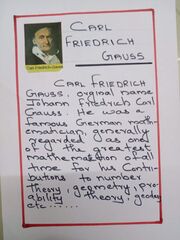 CARL
FRIEDRICH
GAUSS
Carl Friedrich Gauss
CARL FRIEDRICH
GAUSS, orginal name
Johann Friedrich Carl
Gauss. He was a
famous German math-
ematician, generally
regarded as one
of the greatest
mathematician of all
time for his Contri-
butions to number
theory, geometry, pro-
ability theory, geodesy
etc......